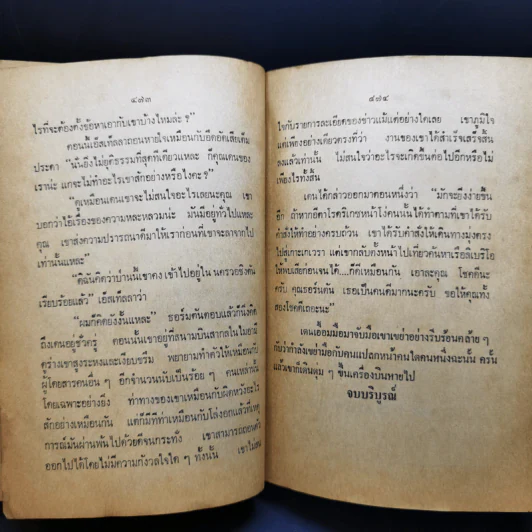 ๔๗๓
ไรที่จะต้องตั้งข้อหาเอากับเขาบ้างไหมล่ะ ?"
ตอนนี้เอ็สเท็ลลาถอนหายใจเหมือนกับอึดอัดเสียเต็ม
ประดา "นั่นยิ่งไม่ยุติธรรมที่สุดทีเดียวแหละ ก็คุณแดนของ
เราน่ะ แกจะไม่ทำอะไรเขาสักอย่างหรือไงคะ ?"
"ดูเหมือนเดนจะไม่สนใจอะไรเลยนะคุณ เขา
บอกว่าไอ้เรื่องของความหละหลวมน่ะ มันมีอยู่ทั่วไปแหละ
คุณ เขาส่งความปรารถนาดีมาให้เราก่อนที่เขาจะลาจากไป
เท่านั้นแหละ"
"ดิฉันคิดว่าป่านนี้เขาคงเข้าไปอยู่ใน
เรียบร้อยแล้ว" เอ็สเท็ลลาว่า
"ผมก็คิดยังงั้นแหละ" ธอร์นดันตอบแล้วก็นิ่งคิด
ถึงเดนอยู่ชั่วครู่ ตอนนั้นเขาอยู่ที่สนามบินสากลไมอามี
คร่างเขาสูงระหงและเงียบขรึม พยายามทำตัวให้เหมือนกับ
ผู้โดยสารคนอื่น ๆ อีกจำนวนนับเป็นร้อย ๆ คนเหล่านั้น
โดยเฉพาะอย่างยิ่ง ท่าทางของเขาเหมือนกับผิดหวังอะไร
สักอย่างเหมือนกัน แต่ก็มีทีท่าเหมือนกับโล่งอกแล้วที่เหตุ
การณ์มันผ่านพ้นไปด้วยดีจนกระทั่ง เขาสามารถถอนตัว
ออกไปได้โดยไม่มีความกังวลใจใด ๆ ทั้งนั้น เขาไม่สน
๔๗๔
ใจกับรายการละเอียดของข่าวแม้แต่อย่างใดเลย เขาภูมิใจ
แต่เพียงอย่างเดียวตรงที่ว่า งานของเขาได้สำเร็จเสร็จสิ้น
ลงแล้วเท่านั้น ไม่สนใจว่าอะไรจะเกิดขึ้นต่อไปอีกหรือไม่
เพียงไรทั้งสิ้น
เดนได้กล่าวออกมาตอนหนึ่งว่า "มักจะยิ่งง่ายขึ้น
อีก ถ้าหากอัตโรคริเกซหน้าโง่คนนั้นได้ทำตามที่เขาได้รับ
คำสั่งให้ทำอย่างครบถ้วน เขาได้รับคำสั่งให้เดินทางมุ่งตรง
ไปสู่เกาะเกเวรา แต่เขากลับตั้งหน้าไปเที่ยวค้นหาเรือลิเบริโอ
ให้พบเสียก่อนจนได้....ก็ดีเหมือนกัน เอาละคุณ โชคดีนะ
ครับ คุณธอร์นดัน เธอเป็นคนดีมากนะครับ ขอให้คุณทั้ง
สองโชคดีเถอะนะ"
เดนเอื้อมมือมาจับมือเขาเขย่าอย่างรีบร้อนคล้าย ๆ
กับว่ากำลังเขย่ามือกับคนแปลกหน้าคนใดคนหนึ่งฉะนั้น ครั้น
แล้วเขาก็เดินดุ่ม ๆ ขึ้นเครื่องบินหายไป
จบบริบูรณ์